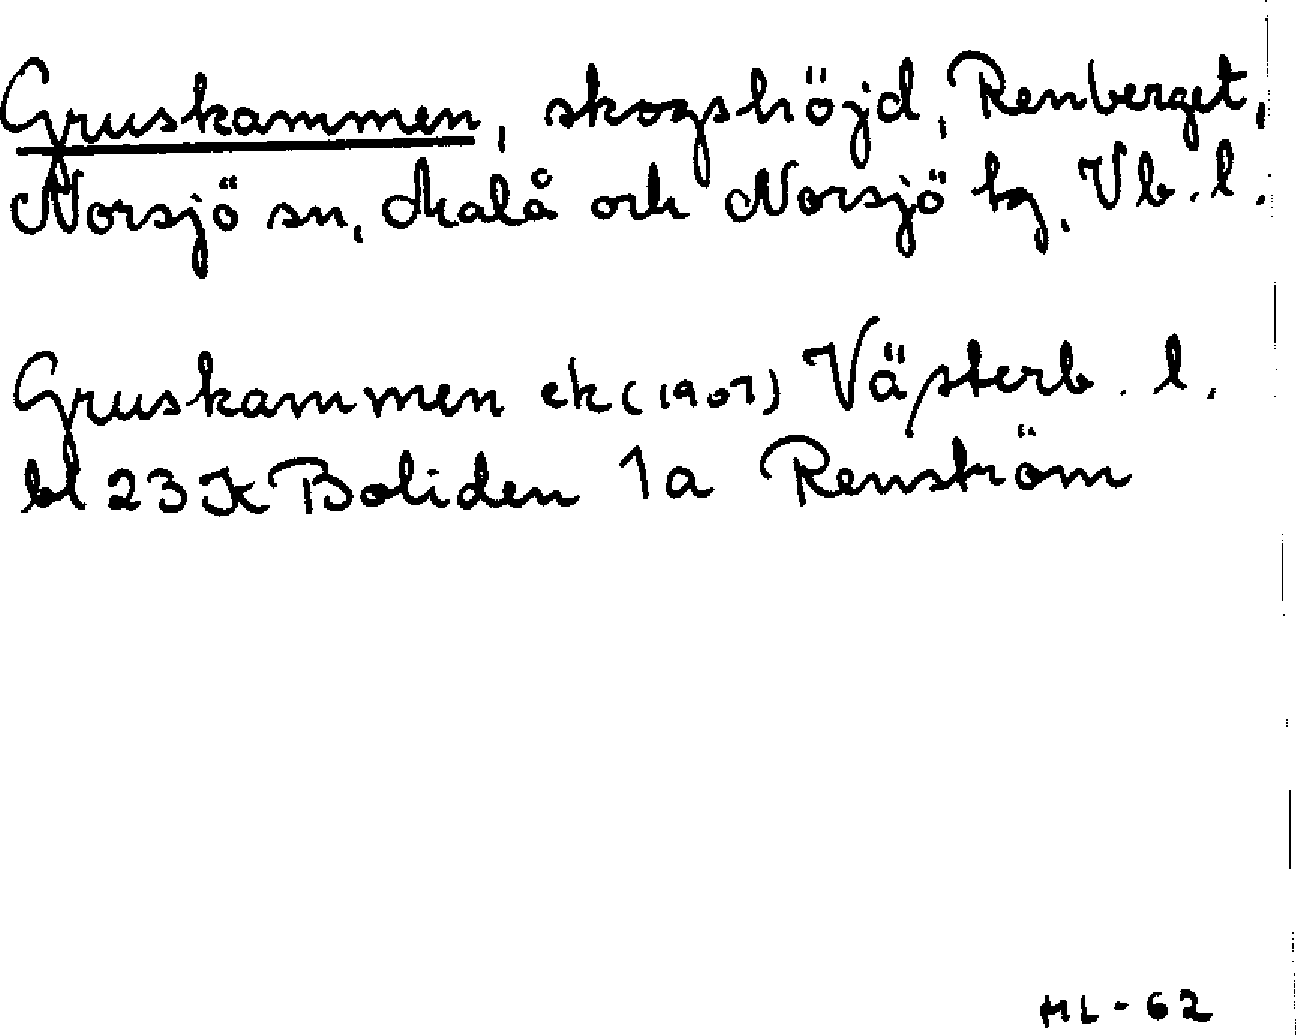 Gruskammen, skogshöjd, Renberget,
Norsjö sn, Malå och Norsjö tg, Vb. l.
Gruskammen ek (1907) Västerb. l.
bl 23 K Boliden 1a Renström
ML - 62